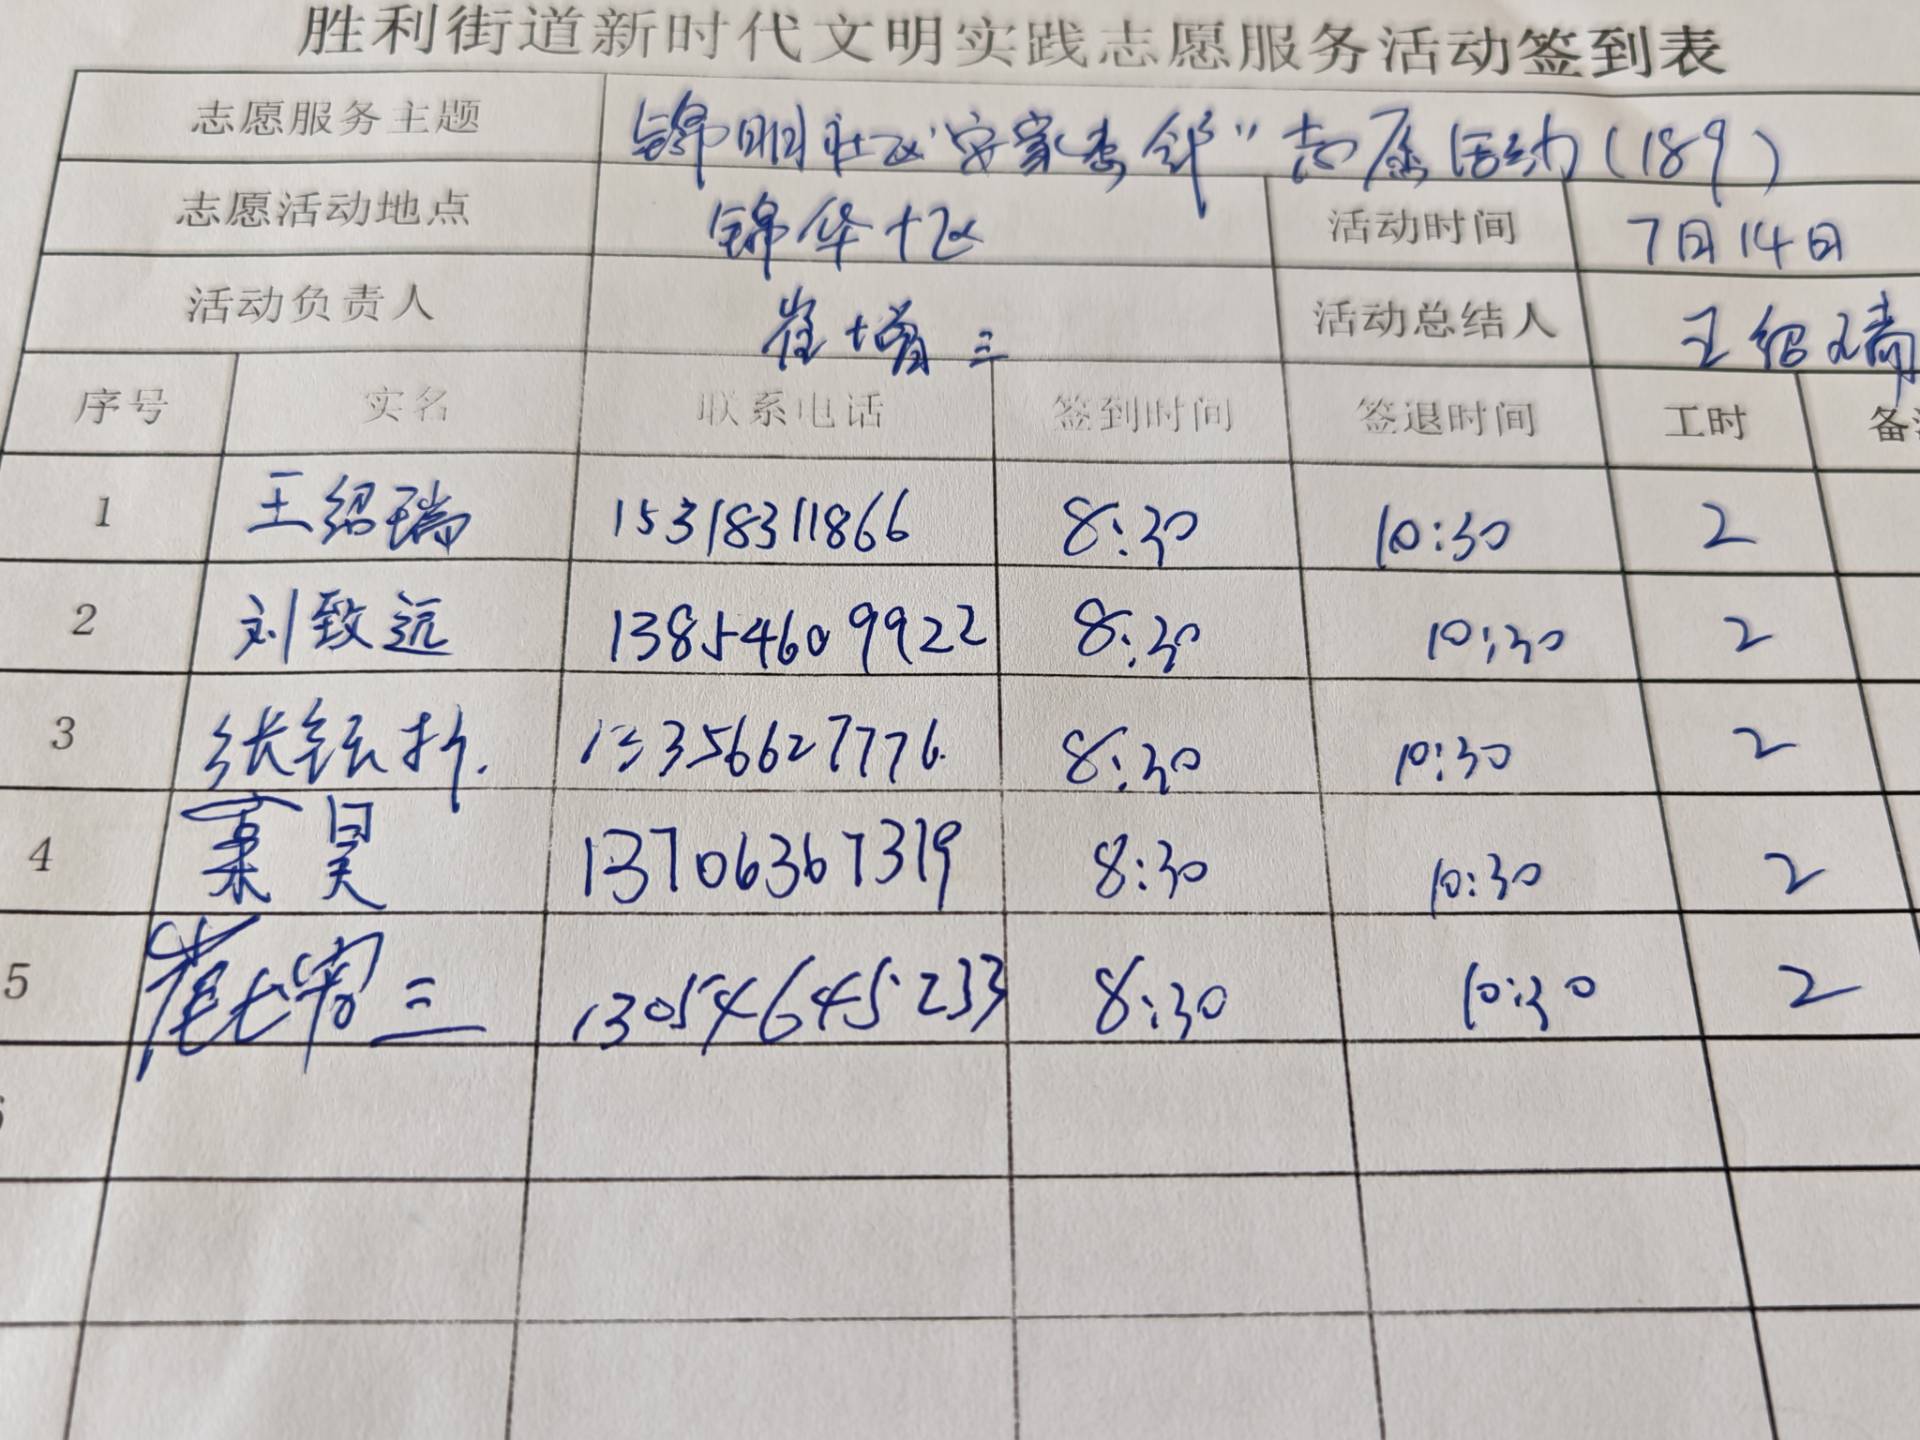 胜利街道新时代文明实践志愿服务活动签到表
志愿服务主题 锦明社区"安家杏邻"志愿活动(189)
志愿活动地点 锦华十区 活动时间 7月14日
活动负责人 崔增三 活动总结人 王绍瑞
序号 实名 联系电话 签到时间 签退时间 工时
1 王绍瑞 15318311866 8:30 10:30 2
2 刘致远 13854609922 8:30 10:30 2
3 张 13356627776 8:30 10:30 2
4 昊 13706367319 8:30 10:30 2
5 崔增三 13054645233 8:30 10:30 2